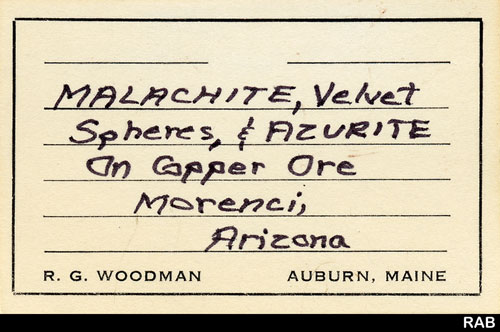 MALACHITE, Velvet
Spheres, & AZURITE
On Copper Ore
Morenci,
Arizona
R. G. WOODMAN AUBURN, MAINE
RAB